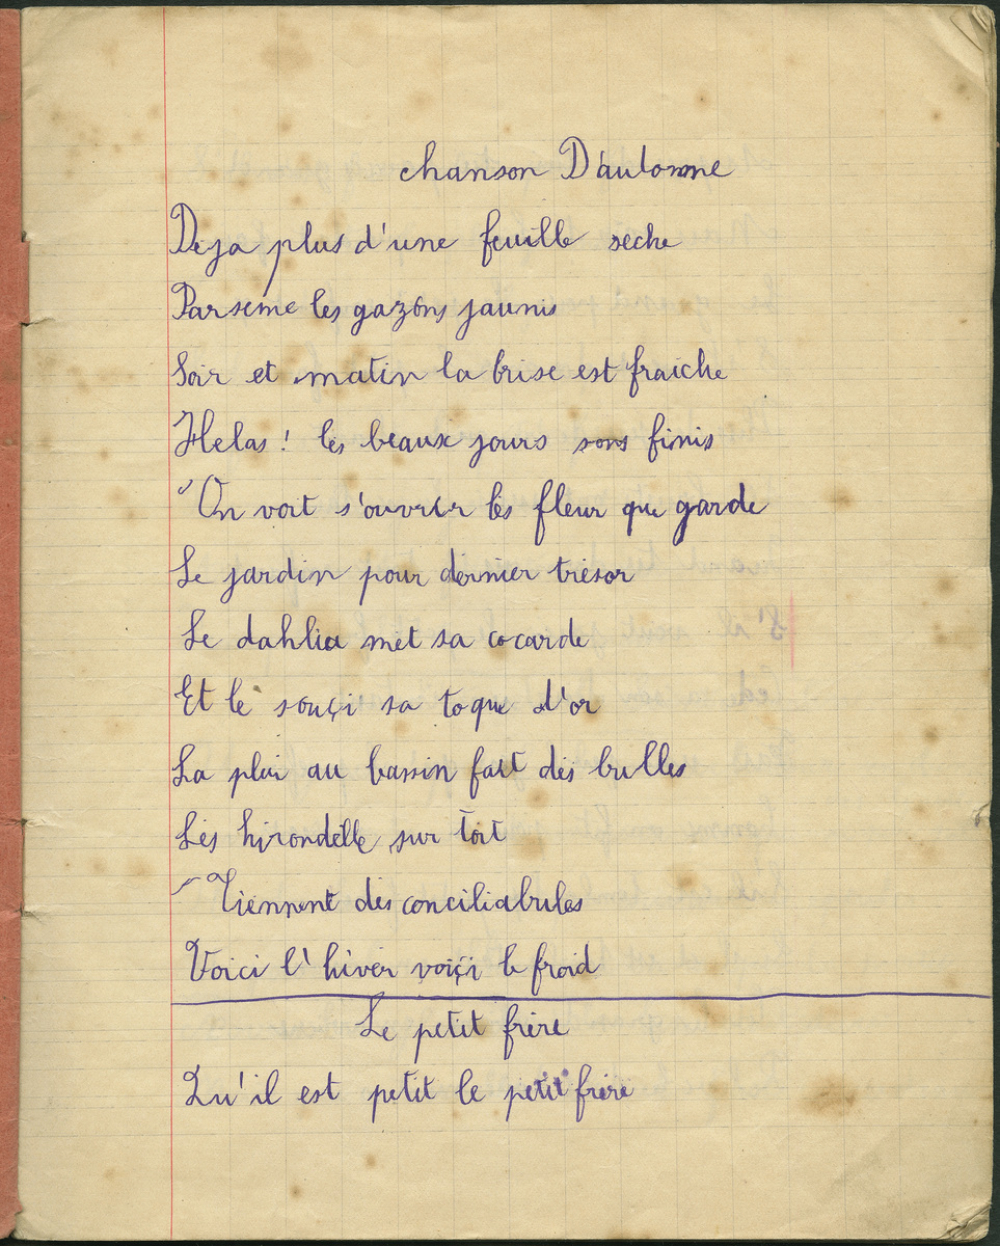 chanson D'automne
Deja plus d'une feuille seche
Parseme les gazons jaunis
Soir et matin la brise est fraiche
Helas! les beaux jours sons finis
"On voit s'ouvrir les fleur que garde
Le jardin pour dernier trésor
Le dahlia met sa cocarde
Et le souçi sa toque d'or
La plui au bassin fait des bulles
Les hirondelle sur toit
Tiennent des conciliabules
Voici l'hiver voiçi le froid
Le petit frère
Qu'il est petit le petit frère